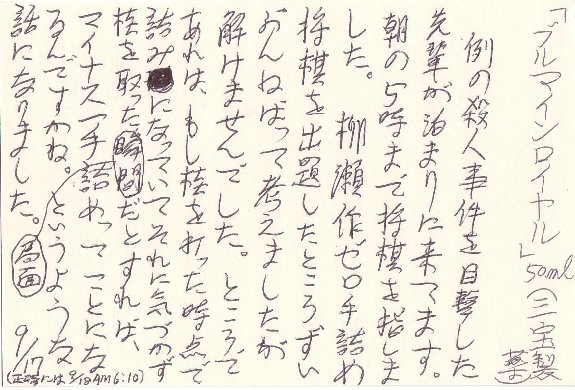 「ブルマインロイヤル」50ml（三宝製薬）
例の殺人事件を目撃した
先輩が泊まりに来てます。
朝の5時まで将棋を指しま
した。 柳瀬作ゼロ手詰め
将棋を出題したところずい
おんねばって考えましたが
解けませんでした。ところで
あれは、もし核を打った時点で
詰みになっていてそれに気づかず
核を取った瞬間だとすれば、
マイナス一手詰めってことにな
るんですかね。というような
話になりました。局面 9/17
（正確には9/18AM6:10）